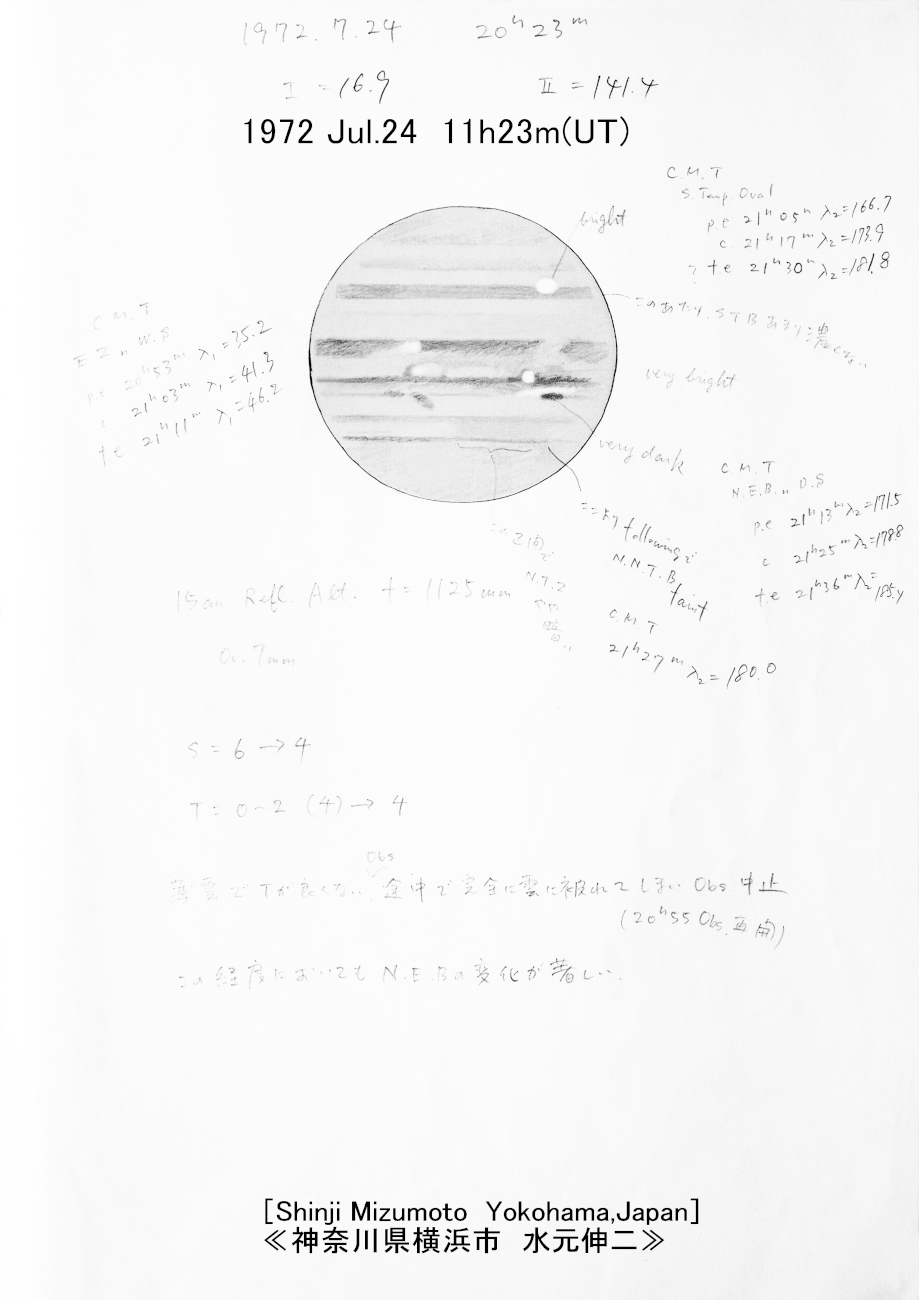 1972. 7. 24 20h 23m
I = 16.9 II = 141.4
1972 Jul.24 11h23m(UT)
C. M. T
S. Temp. Oval
p.e 21h 05m λ2=166.7
c. 21h 17m λ2=173.9
? f e 21h 30m λ2=181.8
bright
このあたり、STBあまり濃くない..
C M T
E Z n W.S
p.e 20h 53m λ1=35.2
c 21h 03m λ1=41.3
f e 21h 11m λ1=46.2
very bright
very dark
C M T
N.E.B.n D.S
p.e 21h 13m λ2=171.5
c 21h 25m λ2=178.8
f.e 21h 36m λ2=185.4
ここより following で
N.N.T.B
faint
C. M. T
21h 27m λ2=180.0
この区間で
N.T.Z
やや
15cm Refl. Alt. f=1125mm
Or. 7mm
S = 6 → 4
T = 0~2 (4) → 4
Obs
薄雲でTが良くない、途中で完全に雲に被れてしまい Obs 中止
(20h55 Obs. 再開)
この経度においても N.E.Bの変化が著しい.
[Shinji Mizumoto Yokohama,Japan]
≪神奈川県横浜市 水元伸二≫